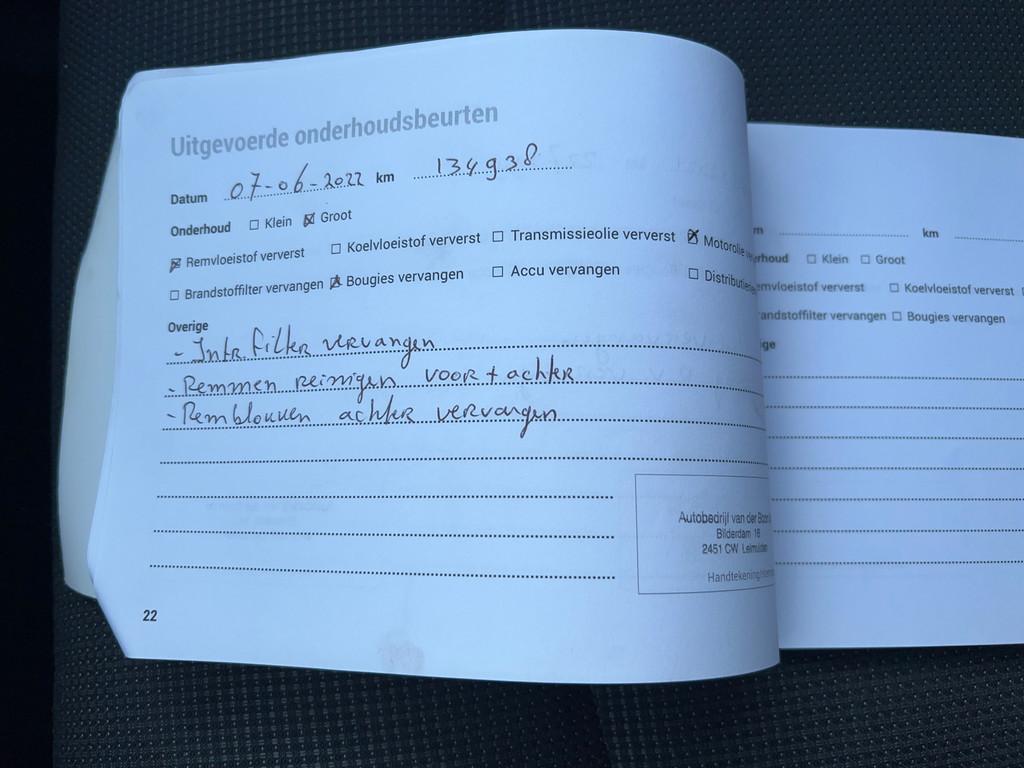 Uitgevoerde onderhoudsbeurten
Datum 07-06-2022 km 134938
Onderhoud ☐ Klein ☒ Groot
☒ Remvloeistof ververst ☐ Koelvloeistof ververst ☐ Transmissieolie ververst ☒ Motorolie
☐ Brandstoffilter vervangen ☒ Bougies vervangen ☐ Accu vervangen ☐
Overige
- Intr. filter vervangen
- Remmen reinigen voor + achter
- Remblokken achter vervangen
Autobedrijf van der
Bilderdam 16
2451 CW Leimuiden
22
km
☐ Klein ☐ Groot
ververst ☐ Koelvloeistof ververst
vervangen ☐ Bougies vervangen